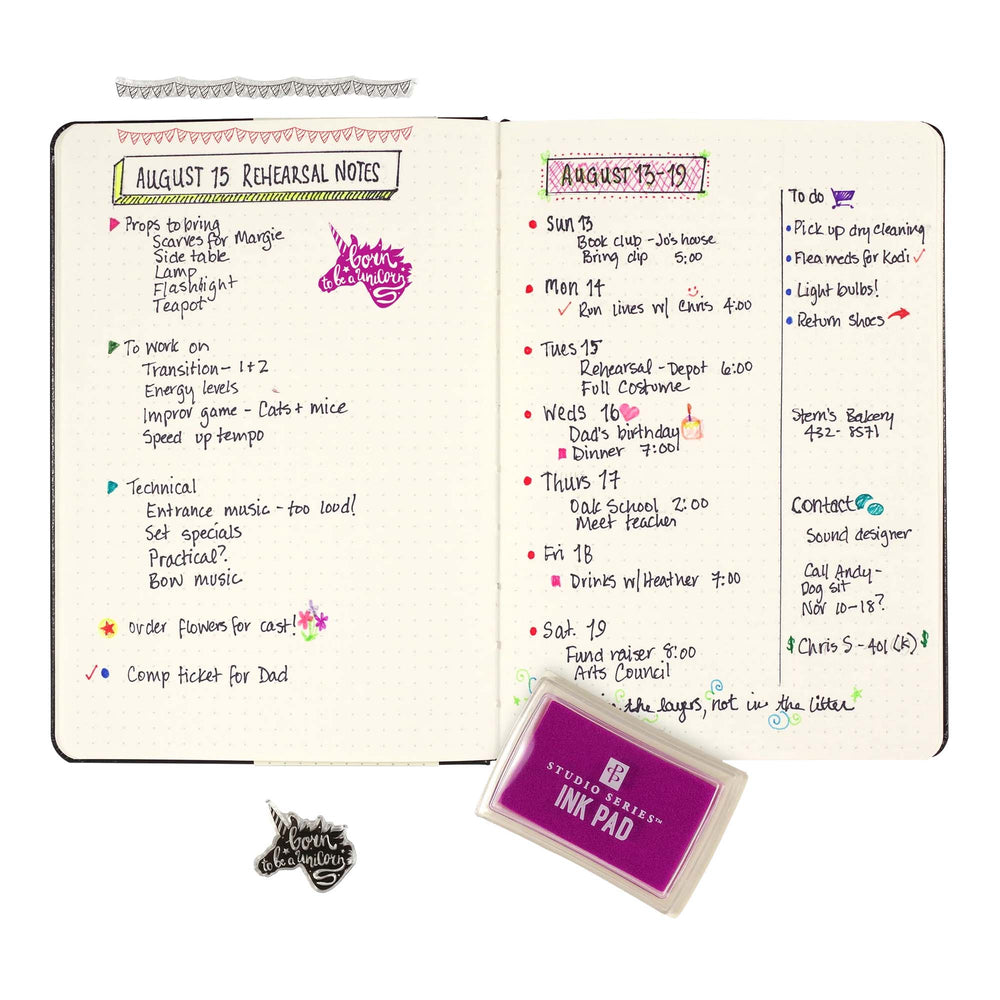 AUGUST 15 REHEARSAL NOTES
Props to bring
Scarves for Margie
Side table
Lamp
Flashlight
Teapot
born
to be a unicorn
To work on
Transition - 1+2
Energy levels
Improv game - Cats + mice
Speed up tempo
Technical
Entrance music - too loud!
Set specials
Practical?
Bow music
order flowers for cast!
Comp ticket for Dad
AUGUST 13-19
Sun 13
Book club - Jo's house
Bring dip 5:00
Mon 14
Run lines w/ Chris 4:00
Tues 15
Rehearsal - Depot 6:00
Full Costume
Weds 16
Dad's birthday
Dinner 7:00
Thurs 17
Oak School 2:00
Meet teacher
Fri 18
Drinks w/ Heather 7:00
Sat. 19
Fund raiser 8:00
Arts Council
To do
Pick up dry cleaning
Flea meds for Kodi
Light bulbs!
Return Shoes
Stern's Bakery
432-8571
Contact
Sound designer
Call Andy-
Dog sit
Nov 10-18?
$ Chris S - 401(k) $
the layers, not in the litter
STUDIO SERIES™
INK PAD
born
to be a unicorn